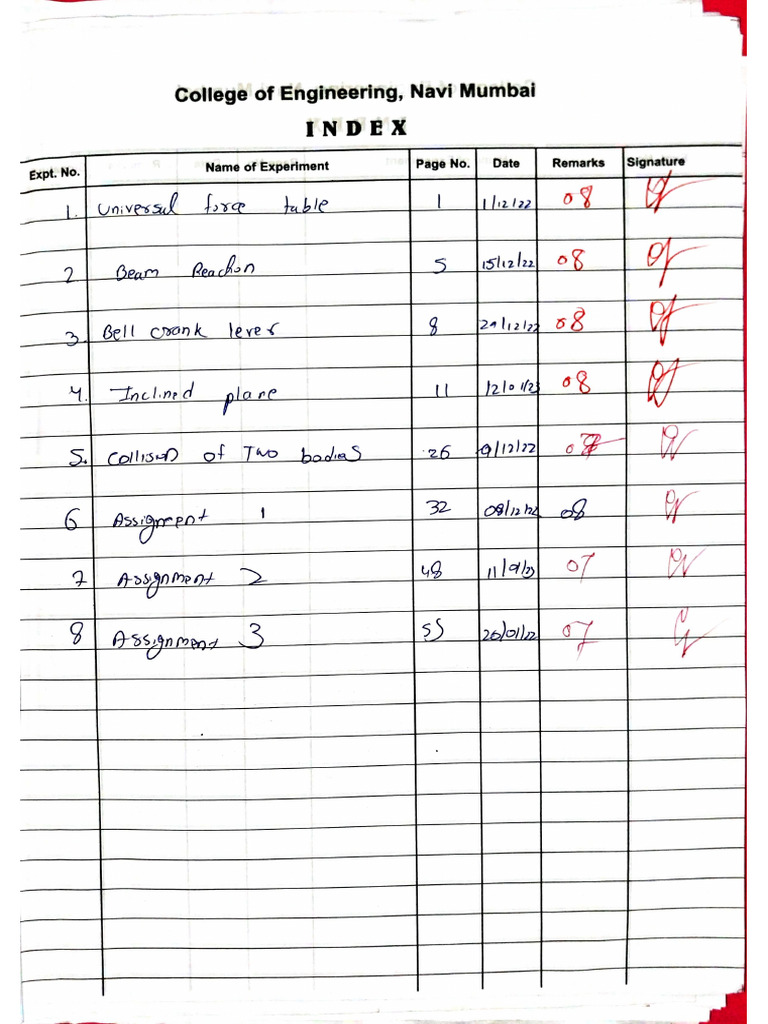 College of Engineering, Navi Mumbai
INDEX
Expt. No. Name of Experiment Page No. Date Remarks Signature
1. Universal force table 1 1/12/22 08
2 Beam Reaction 5 15/12/22 08
3. Bell crank lever 8 29/12/22 08
4. Inclined plane 11 12/01/23 08
5. Collision of Two bodies 26 9/12/22
6 Assignment 1 32 08/12/22 08
7 Assignment 2 48 07
8 Assignment 3 55 26/01/22 07